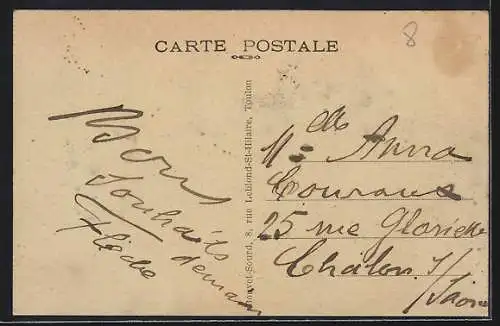 8
CARTE POSTALE
Bons
Souhaits
demain
Bouvet-Sourd, 8, rue Leblond-St-Hilaire, Toulon
Mlle Anna
25 rue Gloriette
Chalon s/
/Saône